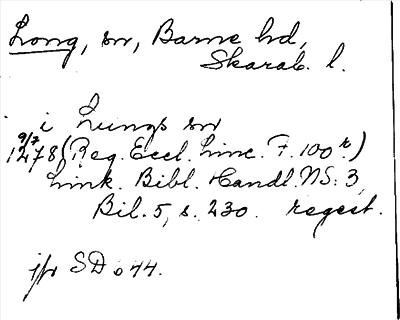 Long, sn, Barne hd,
Skarab. l.
i Lungs sn
9/7
1278 (Reg. Eccl. Linc. F. 100 r.)
Link. Bibl. Handl. NS: 3,
Bil. 5, s. 230. regest.
jfr SD 644.